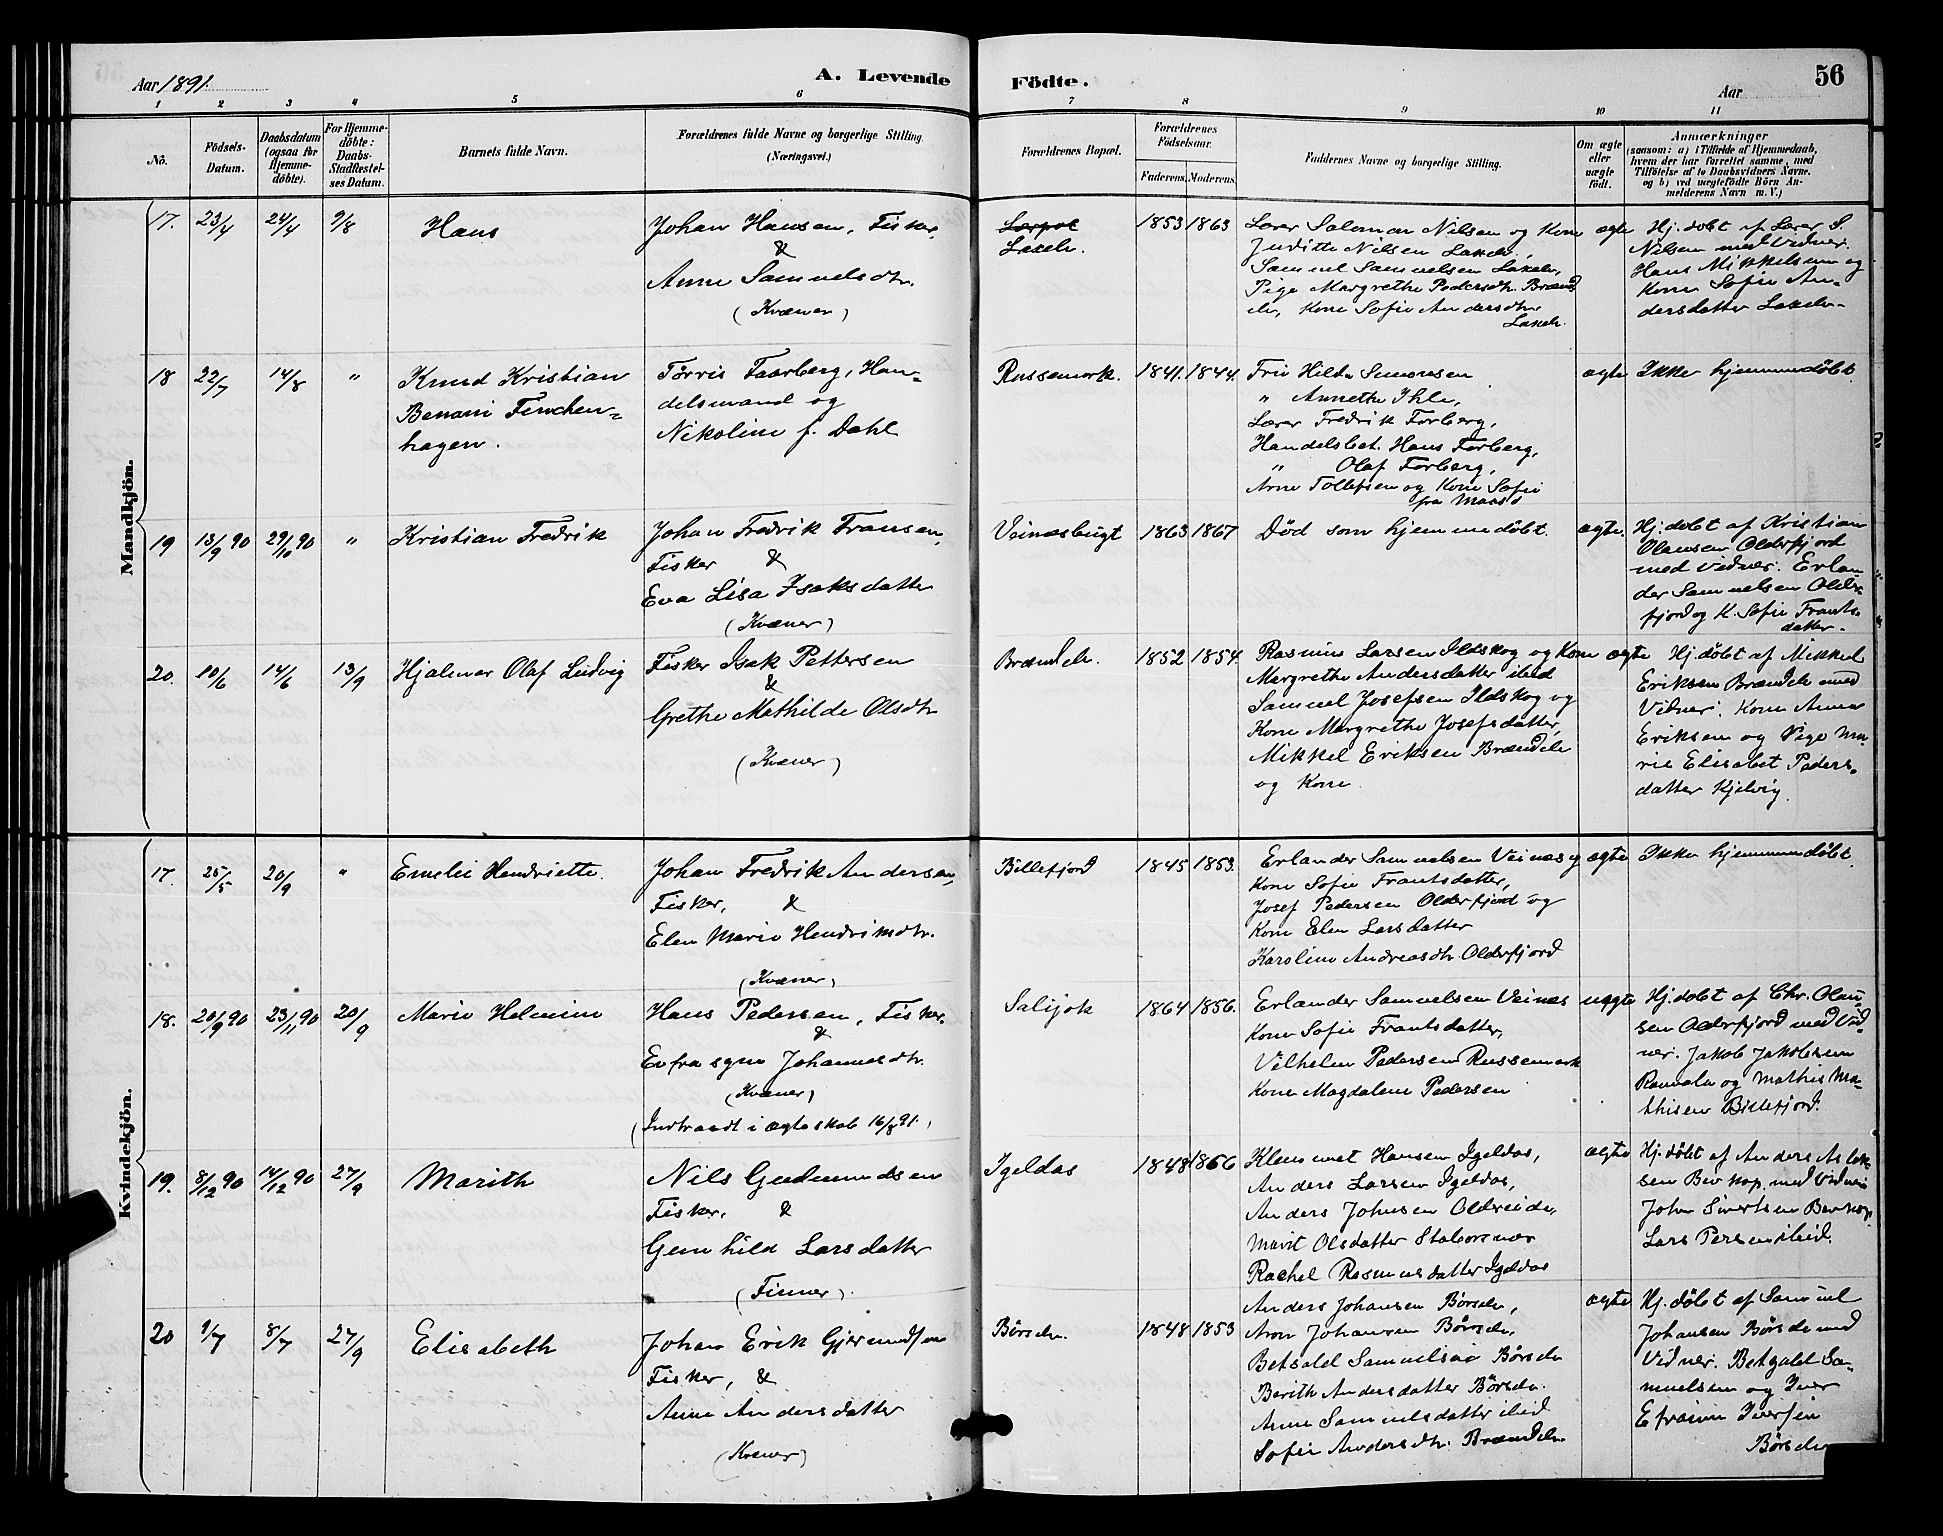 Aar 1891.
A. Levende
Födte.
Aar
56
1 2 3 4 5 6 7 8 9 10 11
No.
Födsels-
Datum.
Daabsdatum
(ogsaa for
Hjemme-
döbte).
For Hjemme-
döbte:
Daabs-
Stadfæstel-
ses Datum.
Barnets fulde Navn.
Forældrenes fulde Navne og borgerlige Stilling.
(Næringsvei.)
Forældrenes Bopæl.
Forældrenes
Födselsaar.
Faderens.
Moderens.
Faddernes Navne og borgerlige Stilling.
Om ægte
eller
uægte
födt.
Anmærkninger
(saasom: a) i Tilfælde af Hjemmedaab,
hvem der har forrettet samme, med
Tilföielse af to Daabsvidners Navne,
og b) ved uægtefödte Börn An-
melderens Navn m. V.)
Mandkjön.
17. 23/4 24/4 9/8
Hans
Johan Hansen, Fisker,
&
Anne Samuelsdtr.
(Kvæner)
Lakselv.
1853 1863
Lærer Salomon Nilsen og Kone
Juditte Nilsen Lakselv,
Samuel Samuelsen Lakselv,
Pige Margrethe Pedersdtr. Brænd
elv, Kone Sofie Andersdtr
Lakselv.
ægte
Hj. døbt af Lærer S.
Nilsen med Vidner.
Hans Mikkelsen og
Kone Sofie An-
dersdatter Lakselv.
18 22/7 14/8 "
Knud Kristian
Benoni Finchen-
hagen.
Tørris Faarberg, Han-
delsmand og
Nikoline f. Dahl
Russemark.
1841. 1844.
Fru Hilda Simonsen
" Annethe Ihle,
Lærer Fredrik Forberg,
Handelsbet. Hans Forberg,
" Olaf Forberg,
Arne Tollefsen og Kone Sofie
fra Maasø
ægte
Ikke hjemmedøbt.
19 13/9 90 29/10 90 "
Kristian Fredrik
Johan Fredrik Fransen,
Fisker &
Eva Lisa Isaksdatter
(Kvæner)
Veinesbugt
1863 1867
Død som hjemmedøbt.
ægte.
Hj. døbt af Kristian
Olausen Olderfjord
med Vidner. Erlan-
der Samuelsen Older-
fjord og K. Sofie Frants-
datter.
20. 10/6 14/6 13/9
Hjalmar Olaf Ludvig
Fisker Isak Pettersen
&
Grethe Mathilde Olsdtr
(Kvæner)
Brændelv.
1852 1854.
Rasmus Larsen Ildskog og Kone
Margrethe Andersdatter ibid
Samuel Josefsen Ildskog og
Kone Margrethe Josefsdatter,
Mikkel Eriksen Brændelv
og Kone.
ægte
Hj. døbt af Mikkel
Eriksen Brændelv med
Vidner. Kone Anna
Eriksen og Pige Ma-
rie Elisabet Peders-
datter Kjelvig.
Kvindekjön.
17. 25/5 20/9 "
Emelie Hendriette.
Johan Fredrik Andersen,
Fisker, &
Elen Marie Hendriksdtr.
(Kvæner)
Billefjord
1845 1853.
Erlander Samuelsen Veines og
Kone Sofie Frantsdatter,
Josef Pedersen Olderfjord og
Kone Elen Larsdatter
Karoline Andreasdtr. Olderfjord
ægte
Ikke hjemmedøbt.
18. 20/9 90 23/11 90 20/9
Marie Helmine
Hans Pedersen, Fisker.
&
Eufrasyne Johannesdtr.
(Kvæner)
(Indtraadt i ægteskab 16/8 91.)
Salijok
1864 1856.
Erlander Samuelsen Veines
Kone Sofie Frantsdatter,
Vilhelm Pedersen Russemark
Kone Magdalene Pedersen
uægte
Hj. døbt af Chr. Olau-
sen Olderfjord med Vid-
ner. Jakob Jakobsen
og Mathis Ma-
thisen Billefjord.
19. 8/12 90 14/12 90 27/9
Marith
Nils Gudmundsen
Fisker. &
Gunhild Larsdatter
(Finner).
Igeldas
1848 1856
Klemmet Hansen Igeldas,
Anders Larsen Igeldas,
Anders Johnsen Oldereide,
Marit Olsdatter Staborsnæs
Rachel Rasmusdatter Igeldas
ægte
Hj. døbt af Anders Aslak-
sen Bevkop, med Vidner
John Sivertsen Bevkop.
Lars Persen ibid.
20 1/7 8/7 27/9
Elisabeth
Johan Erik Gjermundsen
Fisker, &
Anne Andersdatter
(Kvæner)
Børselv.
1848 1853
Anders Johansen Børselv,
Aron Johansen Børselv,
Betsald Samuelsen Børselv
Berith Andersdatter Børselv.
Anne Samuelsdatter ibid.
Sofie Andersdtr. Brændelv.
ægte
Hj. døbt af Samuel
Johansen Børselv med
Vidner. Betzald Sa-
muelsen og Iver
Efraim Iversen
Børselv